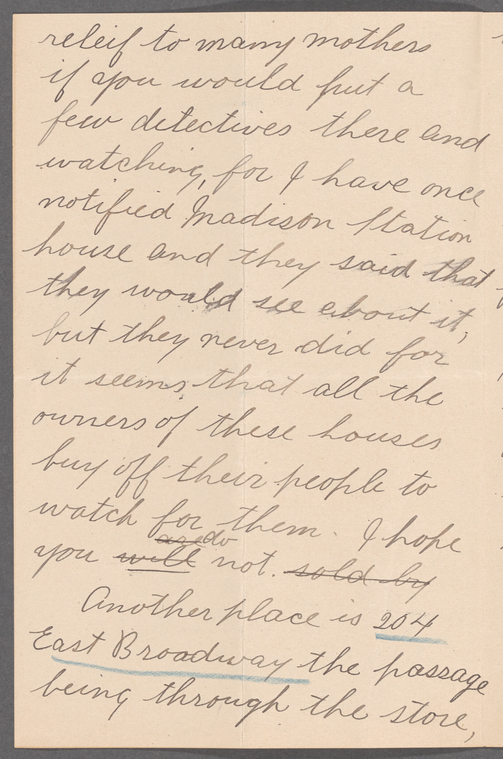 releif to many mothers
if you would put a
few detectives there and
watching, for I have once
notified Madison Station
house and they said that
they would see about it,
but they never did for
it seems, that all the
owners of these houses
buy off their people to
watch for them. I hope
are do
you will not. sold by
Another place is 204
East Broadway the passage
being through the store,